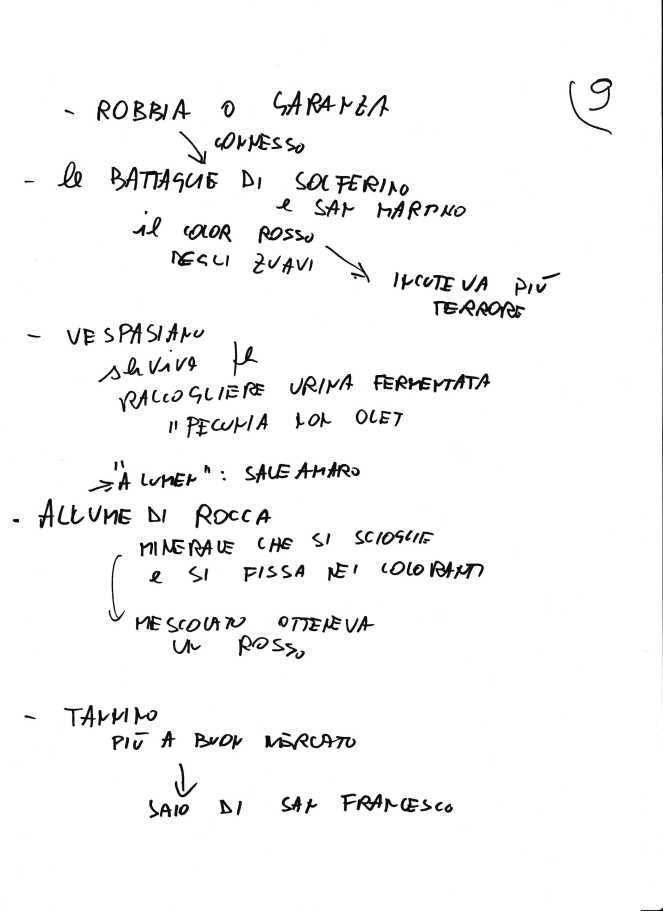 9
- ROBBIA O GARANZA
CONNESSO
- le BATTAGLIE DI SOLFERINO
e SAN MARTINO
il COLOR ROSSO
DEGLI ZUAVI
INCUTEVA PIÙ
TERRORE
- VESPASIANO
serviva per
RACCOGLIERE URINA FERMENTATA
"PECUNIA NON OLET
"ALUMEN": SALE AMARO
- ALLUME DI ROCCA
MINERALE CHE SI SCIOGLIE
e SI FISSA NEI COLORANTI
MESCOLATO OTTENEVA
UN ROSSO
- TANNINO
PIÙ A BUON MERCATO
SAIO DI SAN FRANCESCO